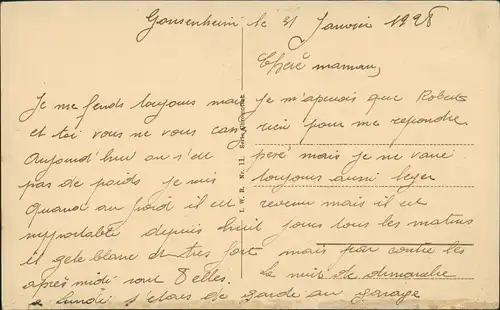 Gonsenheim le 31 Janvier 1928
Chère maman,
Je me fends toujours mais
et toi vous ne vous
Aujourd'hui on s'est
pas de poids je suis
Quand au froid il est
supportable depuis huit jours tous les matins
il gele blanc et très fort mais par contre les
après midi sont belles.
Je m'aperçois que Robert
rien pour me repondre
pére mais je ne vais
toujours aussi leger
revenu mais il est
La nuit de dimanche
a lundi j'étais de garde au garage
I. W. B. Nr. 11.